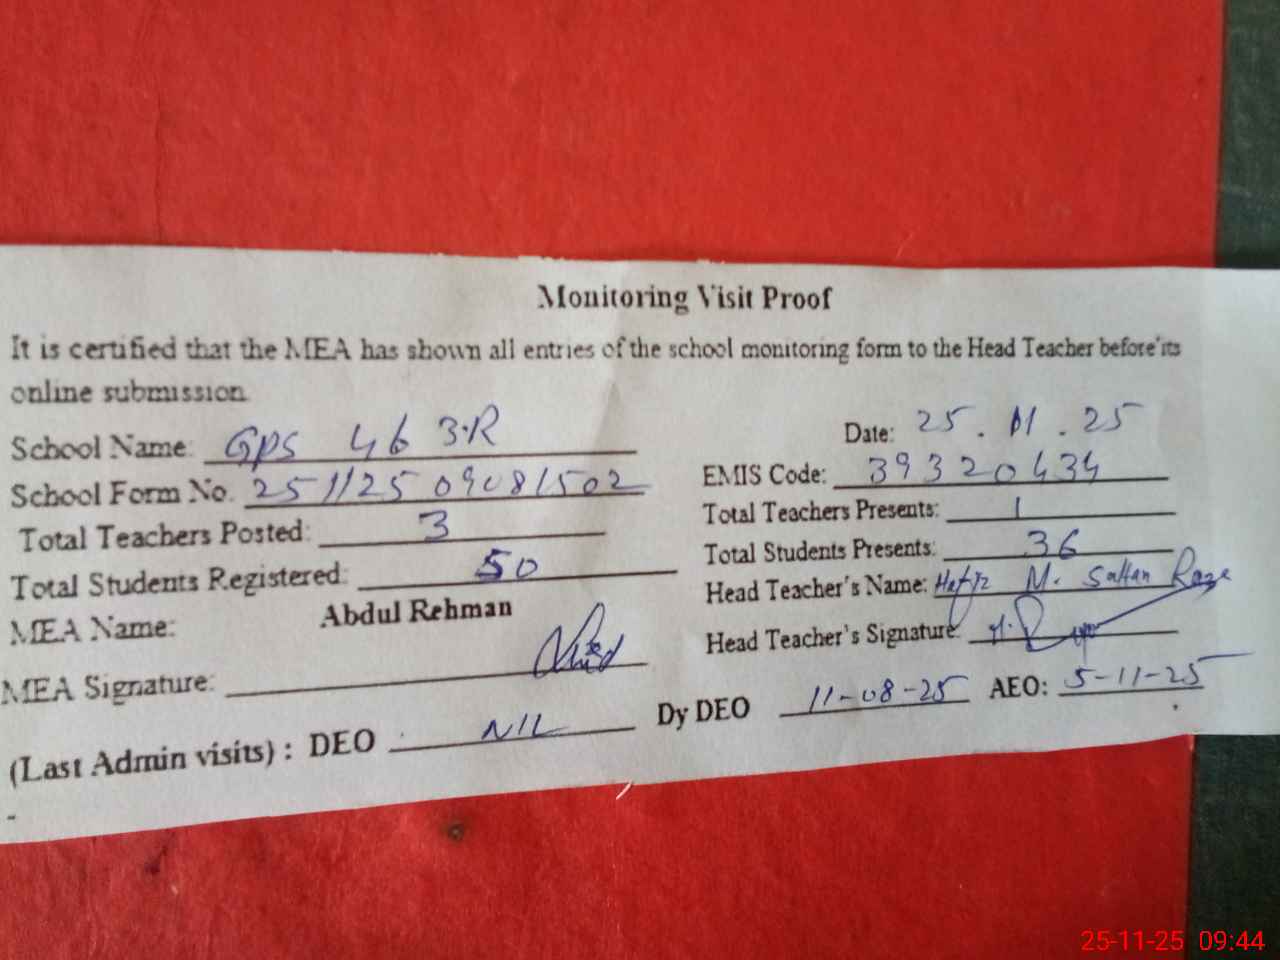 Monitoring Visit Proof
It is certified that the MEA has shown all entries of the school monitoring form to the Head Teacher before its
online submission.
School Name: GPS 46 3.R
Date: 25.11.25
School Form No. 251125 09081502
EMIS Code: 39320434
Total Teachers Posted: 3
Total Teachers Presents: 1
Total Students Registered: 50
Total Students Presents: 36
MEA Name: Abdul Rehman
Head Teacher's Name: Hafiz M. Sultan Raza
MEA Signature:
Head Teacher's Signature:
(Last Admin visits) : DEO NIL Dy DEO 11-08-25 AEO: 5-11-25
25-11-25 09:44